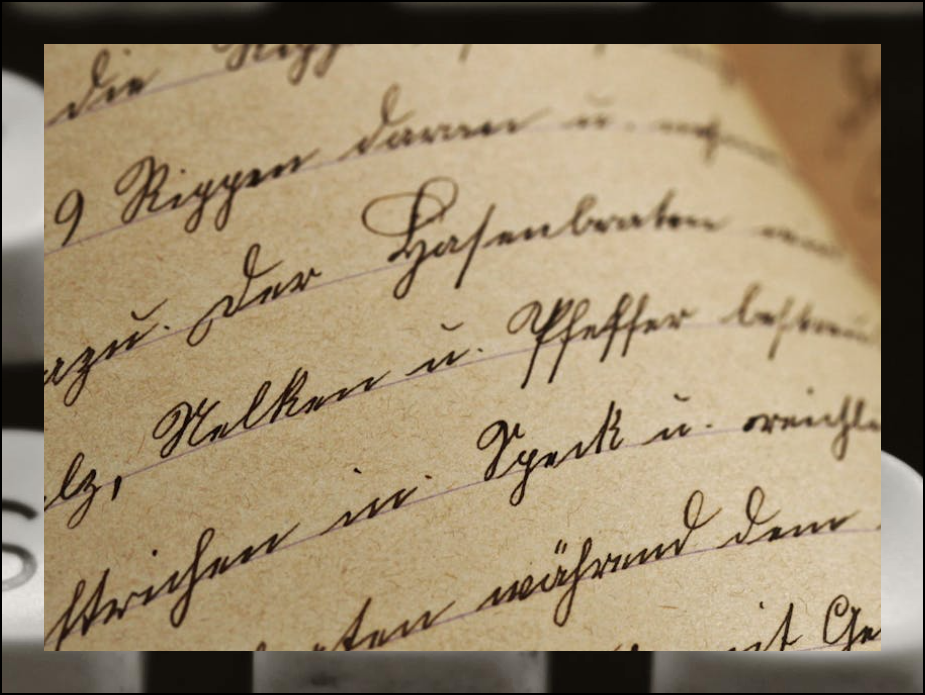 die
9 Rippen daran u.
azu. Der Hasenbraten
lz, Nelken u. Pfeffer bestreu
strichen in. Speck u. reichl
während dem
mit Ge